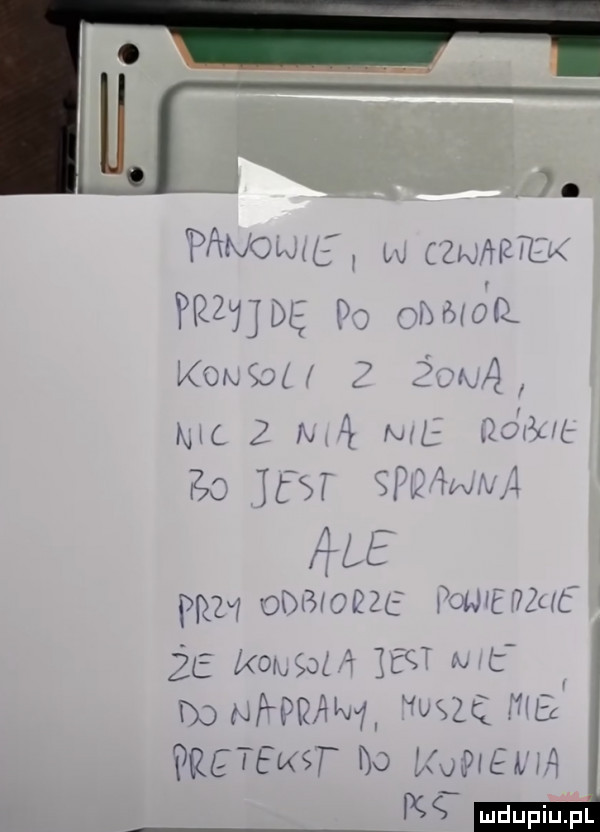 PANOWIE, W CZWARTEK
PRZYJDĘ PO ODBIÓR
KONSOLI Z ŻONĄ,
NIC Z NIĄ NIE RÓBCIE
BO JEST SPRAWNA
ALE
PRZY ODBIORZE POWIEDZCIE
ŻE KONSOLA JEST NIE
DO NAPRAWY, MUSZĘ MIEĆ
PRETEKST DO KUPIENIA
PS5
mdupiu.pl